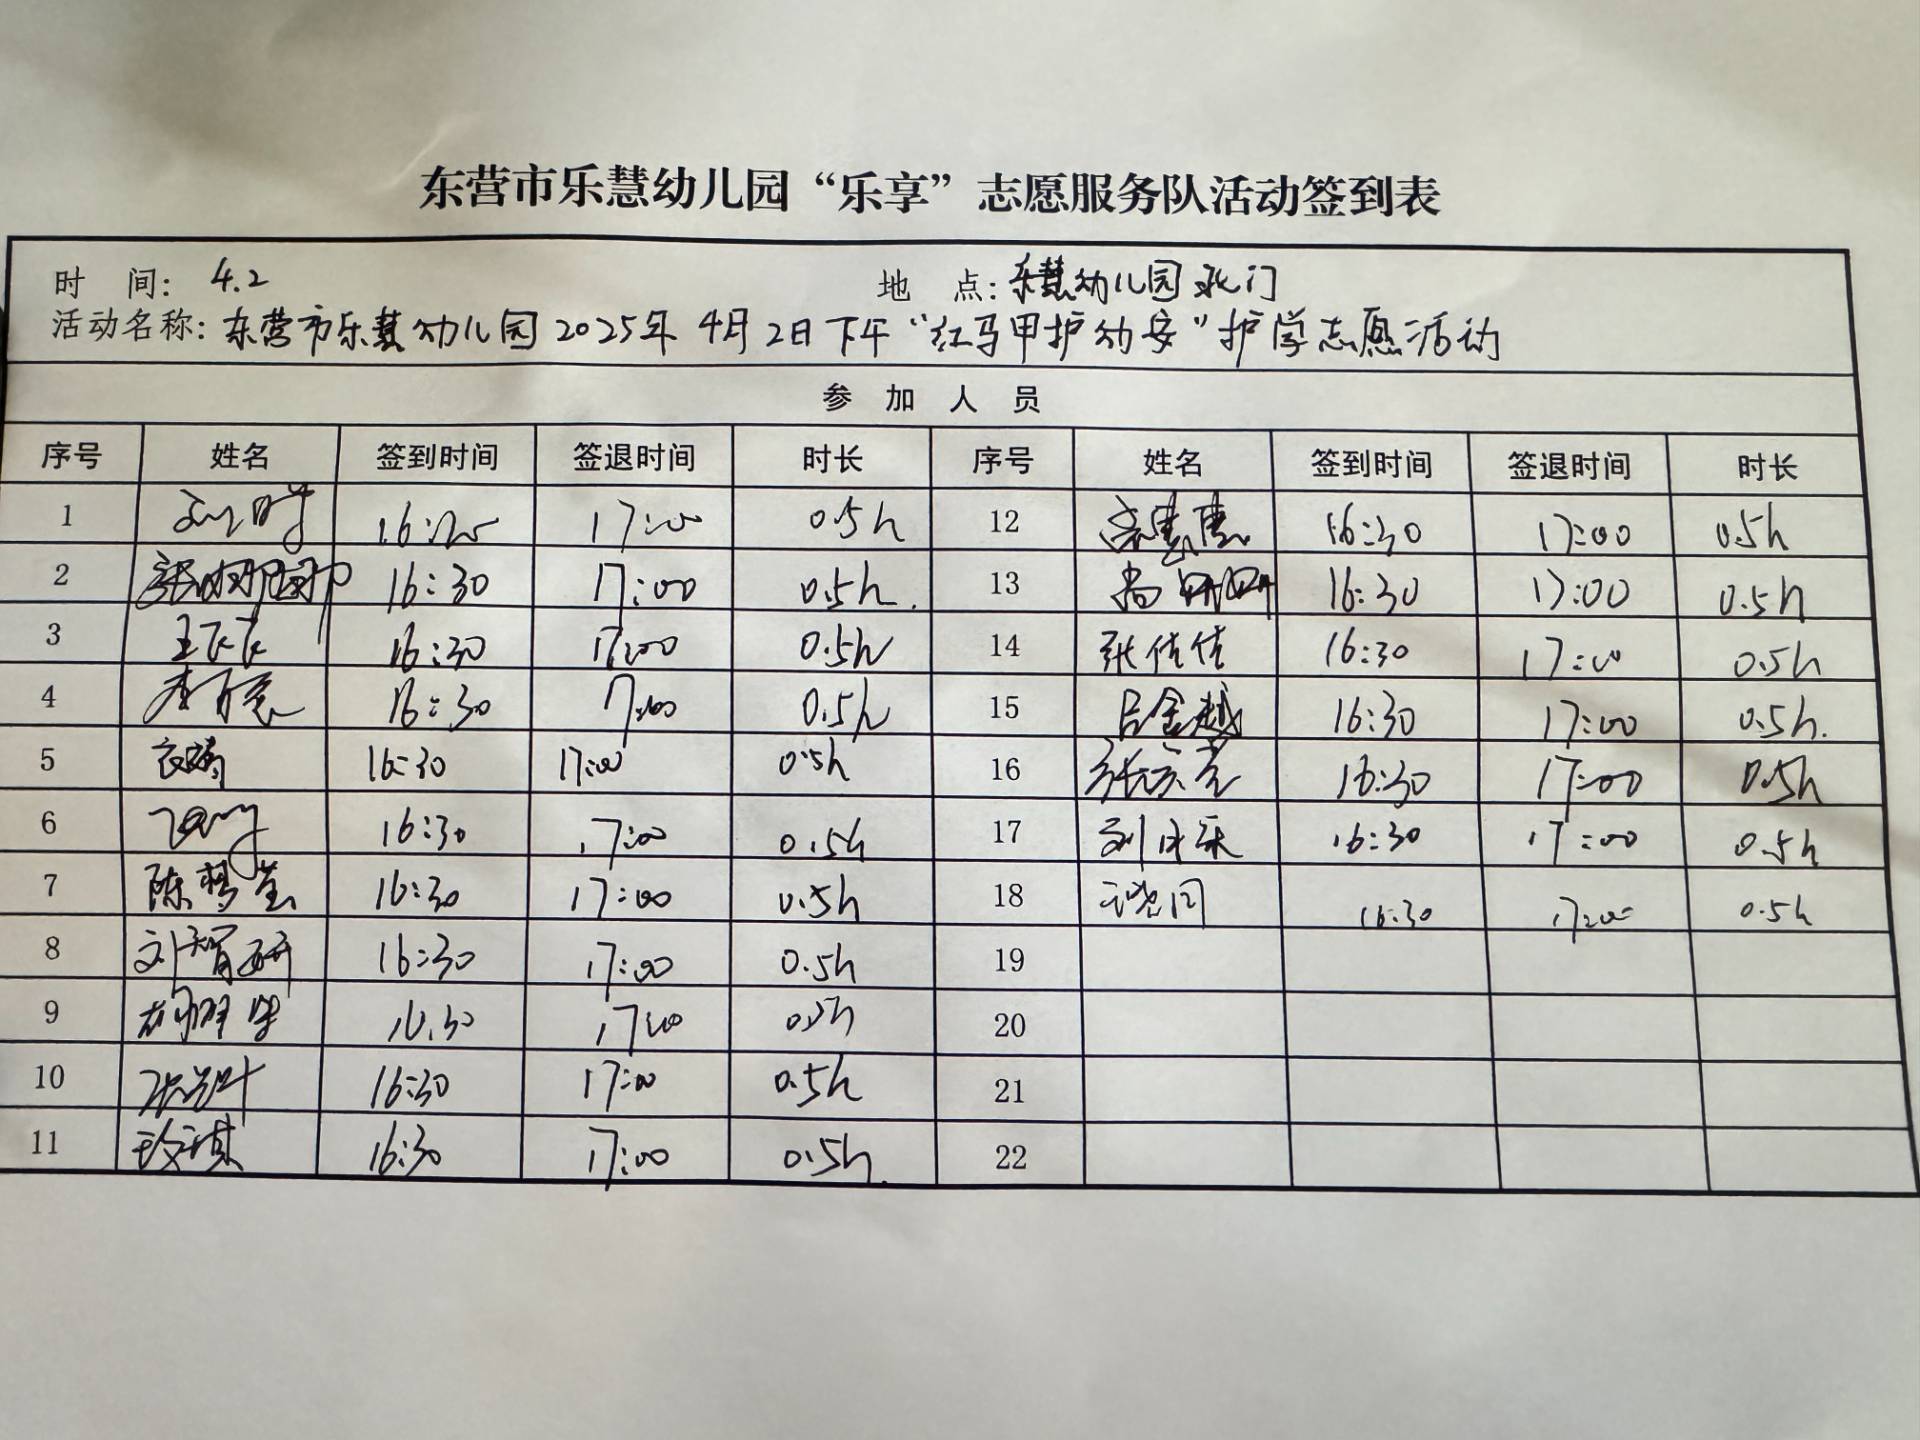 东营市乐慧幼儿园“乐享”志愿服务队活动签到表
时 间: 4.2 地 点: 乐慧幼儿园北门
活动名称: 东营市乐慧幼儿园2025年4月2日下午“红马甲护幼安”护学志愿活动
参 加 人 员
序号 姓名 签到时间 签退时间 时长 序号 姓名 签到时间 签退时间 时长
1 17:00 0.5h 12 16:30 17:00 0.5h
2 16:30 17:00 0.5h. 13 16:30 17:00 0.5h
3 王飞飞 16:30 17:00 0.5h 14 张佳佳 16:30 17:00 0.5h
4 16:30 17:00 0.5h 15 吕金越 16:30 17:00 0.5h.
5 16:30 17:00 0.5h 16 16:30 17:00 0.5h
6 16:30 17:00 0.5h 17 16:30 17:00 0.5h
7 陈梦莹 16:30 17:00 0.5h 18 16:30 17:00 0.5h
8 刘智妍 16:30 17:00 0.5h 19
9 16:30 17:00 0.5h 20
10 16:30 17:00 0.5h 21
11 16:30 17:00 0.5h. 22